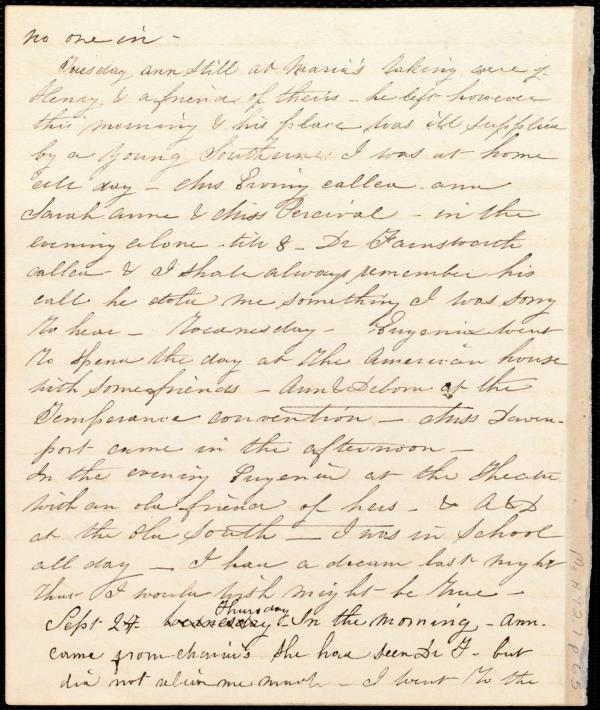 no one in -
Tuesday, ann still at Maria's taking care of
Henry, & a friend of theirs - he left however
this morning & his place was ill supplied
by a young Southerner I was at home
all day - Miss Ewing called - and
Sarah Anne & Miss Percival - in the
evening alone till 8 - Dr Farnsworth
called - & I shall always remember his
call he told me something I was sorry
to hear - Wednesday - Eugenia went
to spend the day at the American house
with some friends - Ann & Deborn at the
Temperance convention - Miss Daven-
port came in the afternoon -
In the evening Eugenia at the Theatre
with an old friend of hers - & A & D
at the Old South - I was in School
all day - I had a dream last night
that I would wish might be true -
Sept 24. Thursday - In the morning, - Ann.
came from Maria's She had seen Dr F - but
did not relieve me much - I went to the